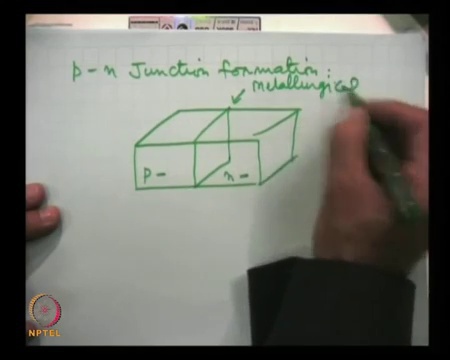 p-n Junction formation:
metallurgical
p-
n-
NPTEL